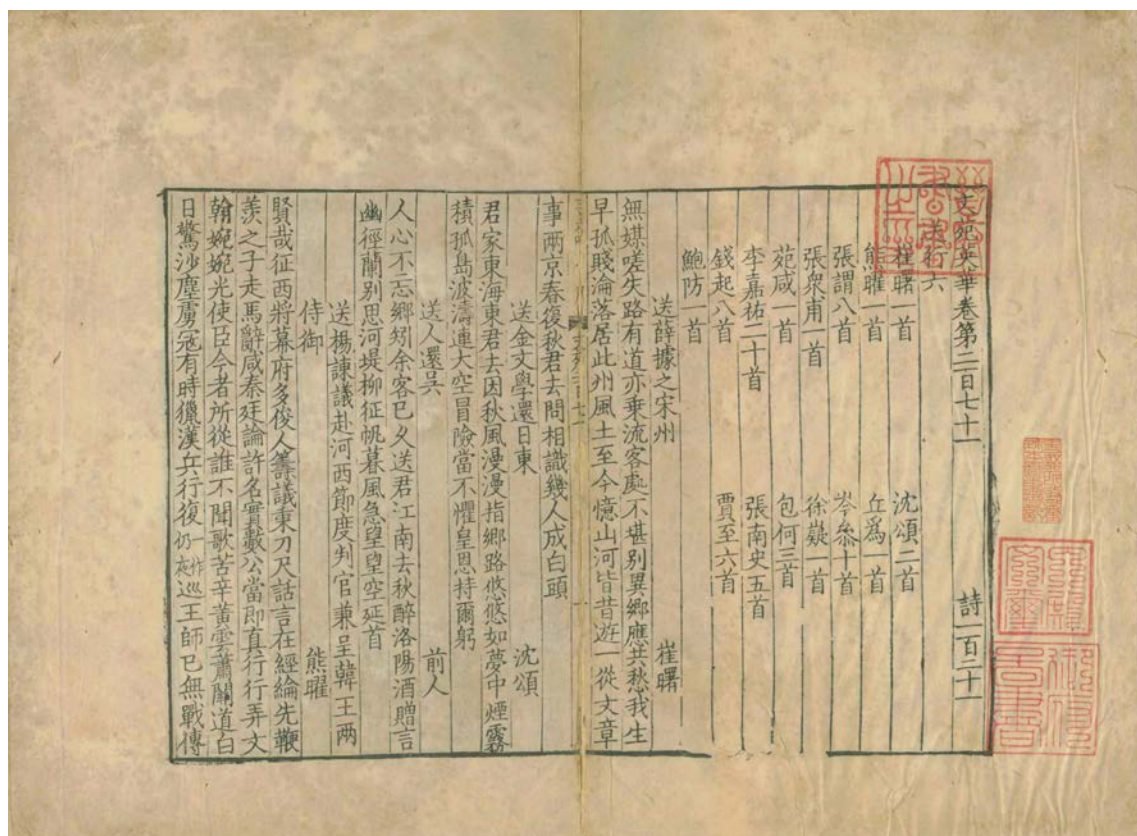 文苑英華卷第二百七十一　詩一百二十一
送行六
崔曙一首　沈頌二首
熊曜一首　丘爲一首
張謂八首　岑參十首
張衆甫一首　徐嶷一首
苑咸一首　包何三首
李嘉祐二十首　張南史五首
錢起八首　賈至六首
鮑防一首
送薛據之宋州　崔曙
無媒嗟失路有道亦乗流客處不堪別異鄉應共愁我生
早孤賤淪落居此州風土至今憶山河皆昔遊一從文章
事两京春復秋君去問相識幾人成白頭
送金文學還日東　沈頌
君家東海東君去因秋風漫漫指鄉路悠悠如夢中煙霧
積孤島波濤連大空冒險當不懼皇恩持爾躬
送人還吳　前人
人心不忘鄉矧余客已久送君江南去秋醉洛陽酒贈言
幽徑蘭別思河堤柳征帆暮風急望望空延首
送楊諫議赴河西節度判官兼呈韓王两
侍御　熊曜
賢哉征西將幕府多俊人籌議秉刀尺話言在經綸先鞭
羨之子走馬辭咸秦廷論許名實數公當即真行行弄文
翰婉婉光使臣今者所從誰不聞歌苦辛黃雲蕭關道白
日驚沙塵虜寇有時獵漢兵行復一作仍夜巡王師已無戰傳